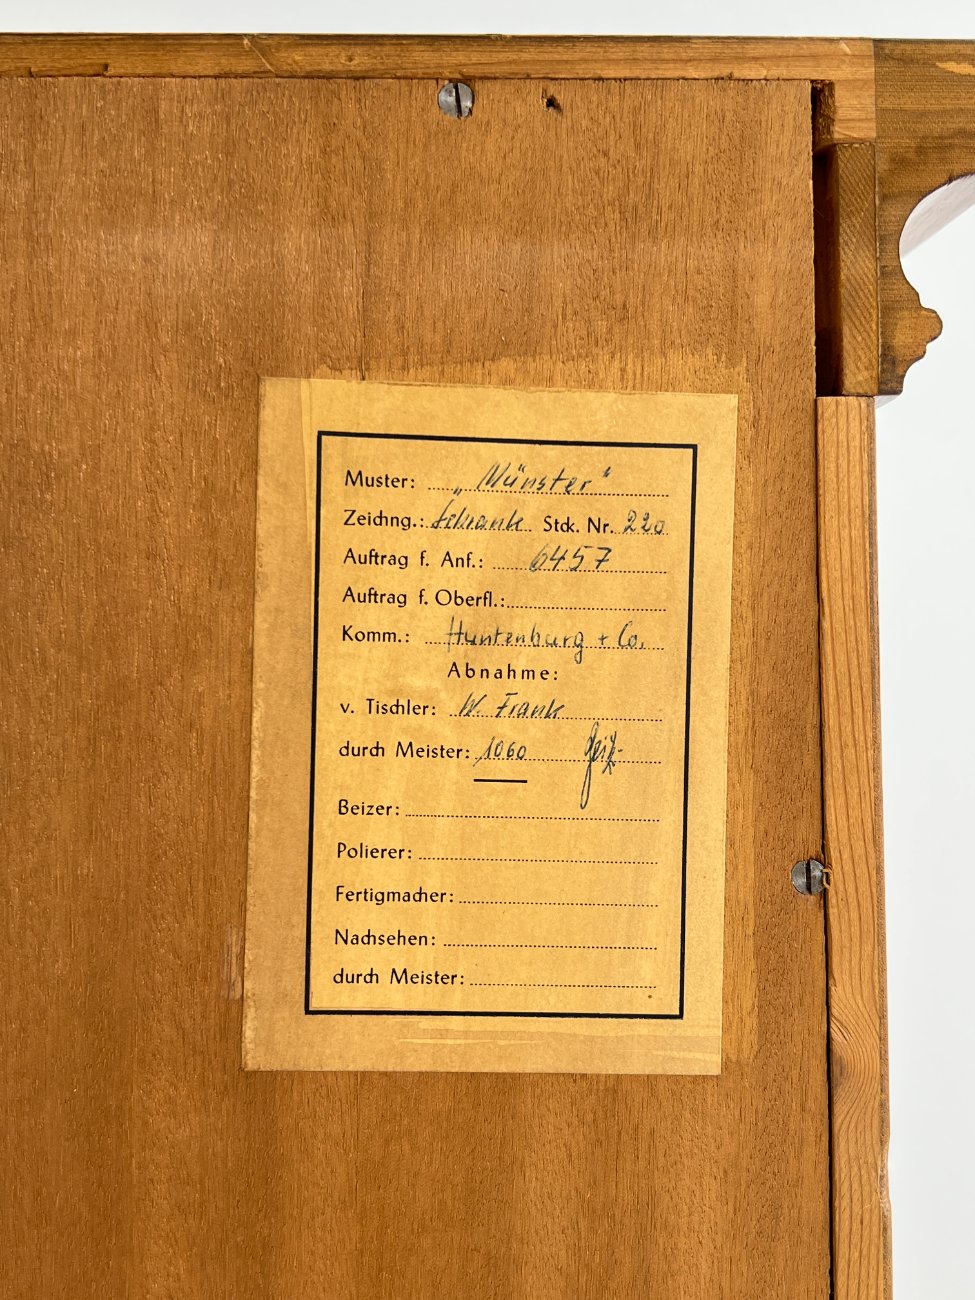 Muster: „Münster"
Zeichng.: Schrank Stck. Nr. 220
Auftrag f. Anf.: 6457
Auftrag f. Oberfl.:
Komm.: Huntenburg + Co.
Abnahme:
v. Tischler: W. Frank
durch Meister: 1060
Beizer:
Polierer:
Fertigmacher:
Nachsehen:
durch Meister: